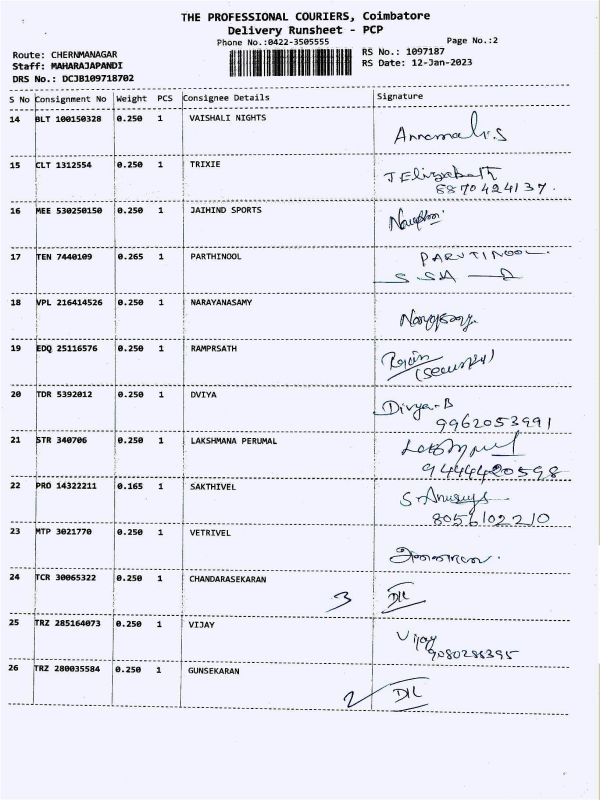 THE PROFESSIONAL COURIERS, Coimbatore
Delivery Runsheet - PCP
Phone No.:0422-3505555 Page No.:2
Route: CHERNMANAGAR RS No.: 1097187
Staff: MAHARAJAPANDI RS Date: 12-Jan-2023
DRS No.: DCJB109718702
S No Consignment No Weight PCS Consignee Details Signature
14 BLT 100150328 0.250 1 VAISHALI NIGHTS
15 CLT 1312554 0.250 1 TRIXIE J Elizabath
8870424137.
16 MEE 530250150 0.250 1 JAIHIND SPORTS
17 TEN 7440109 0.265 1 PARTHINOOL PARUTINOOL.
18 VPL 216414526 0.250 1 NARAYANASAMY
19 EDQ 25116576 0.250 1 RAMPRSATH
(Security)
20 TDR 5392012 0.250 1 DVIYA Divya-B
9962053991
21 STR 340706 0.250 1 LAKSHMANA PERUMAL
9444420598
22 PRO 14322211 0.165 1 SAKTHIVEL
8056102210
23 MTP 3021770 0.250 1 VETRIVEL
24 TCR 30065322 0.250 1 CHANDARASEKARAN
3 D/L
25 TRZ 285164073 0.250 1 VIJAY Vijay
9080288395
26 TRZ 280035584 0.250 1 GUNSEKARAN
2 D/L